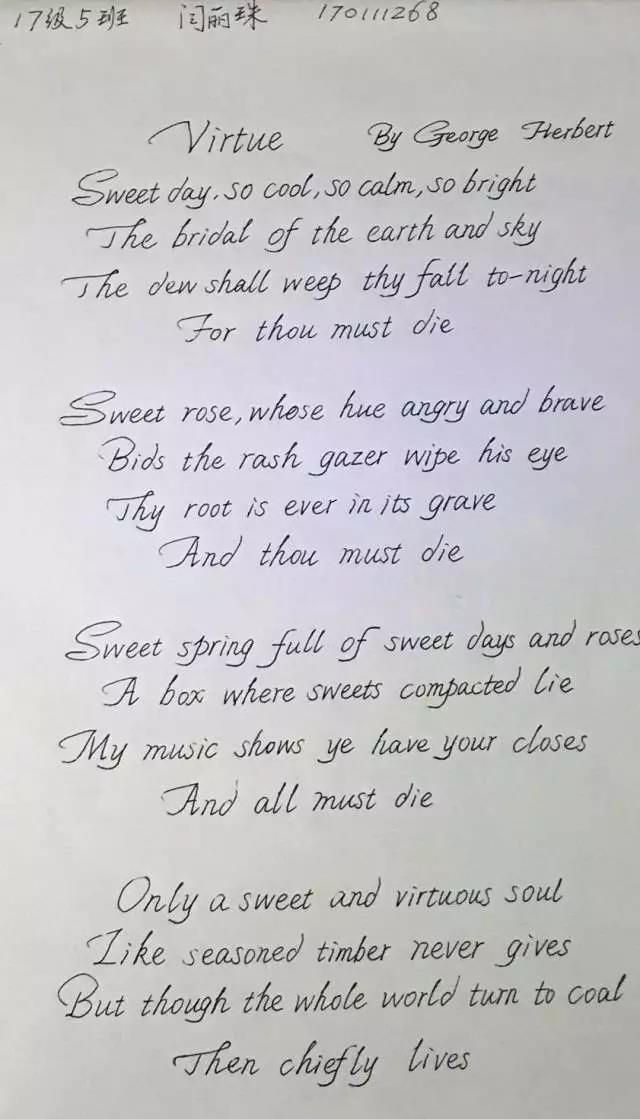 17级5班 闫丽珠 170111268
Virtue By George Herbert
Sweet day. so cool, so calm, so bright
The bridal of the earth and sky
The dew shall weep thy fall to-night
For thou must die
Sweet rose, whose hue angry and brave
Bids the rash gazer wipe his eye
Thy root is ever in its grave
And thou must die
Sweet spring full of sweet days and roses
A box where sweets compacted lie
My music shows ye have your closes
And all must die
Only a sweet and virtuous soul
Like seasoned timber never gives
But though the whole world turn to coal
Then chiefly lives